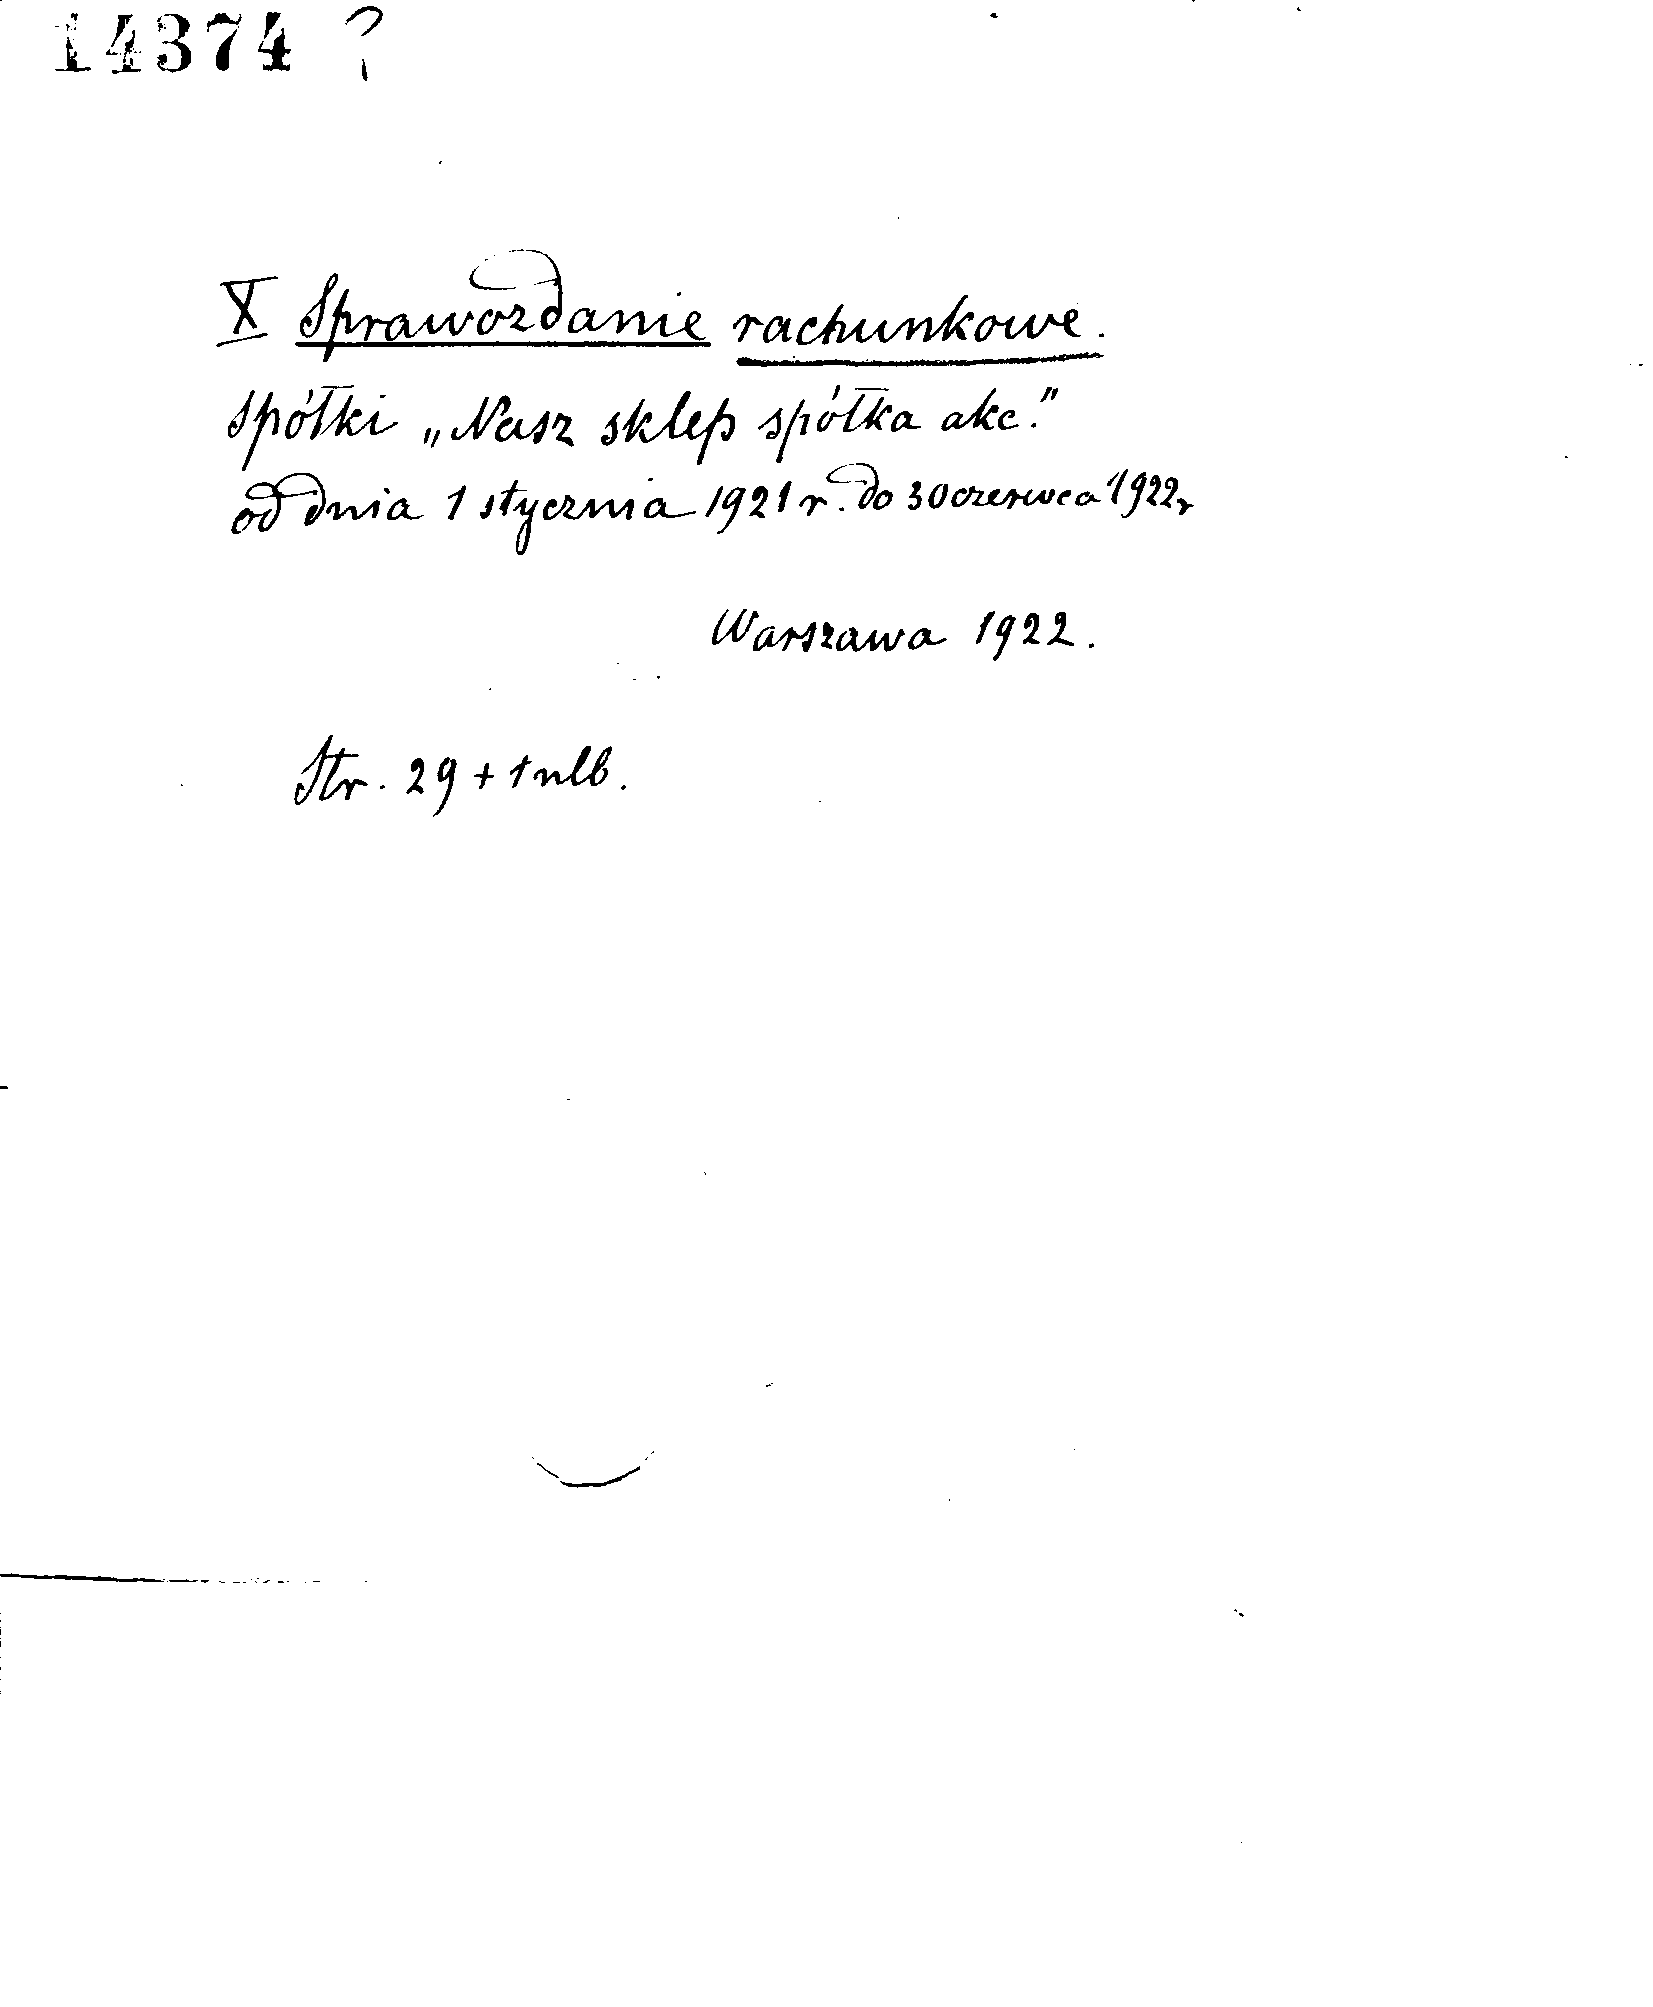 14374 ?
X Sprawozdanie rachunkowe.
spółki „Nasz sklep spółka akc."
od dnia 1 stycznia 1921 r. do 30 czerwca 1922 r
Warszawa 1922.
Str. 29 + 1 nlb.